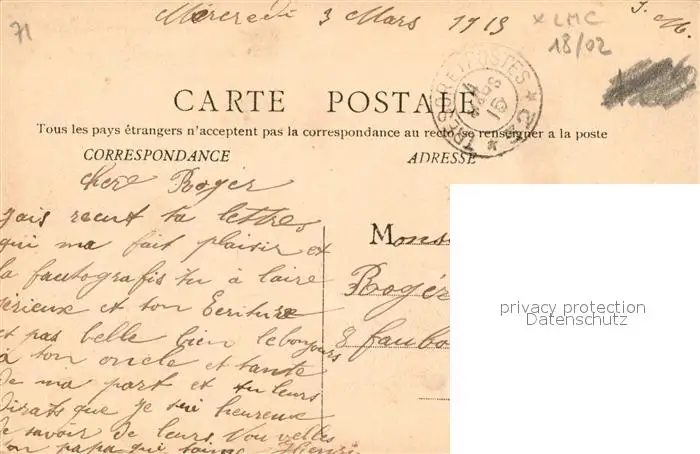 71
Mercredi 3 Mars 1915
J. M.
x LMC
18/02
TRESOR ET POSTES * 
CARTE POSTALE
Tous les pays étrangers n'acceptent pas la correspondance au recto (se renseigner a la poste
CORRESPONDANCE
ADRESSE
chere Rogér
jais recut ta lettres
qui ma fait plaisir et
la fautografis tu à laire
serieux et ton Ecriture
et pas belle bien lebonjours
à ton oncle et tante
de ma part et tu leurs
dirats que je sui heureux
de savoir de leurs Nouvelles
ton papa qui taime Henri
Mons
Rogér
8 faubo
privacy protection
Datenschutz